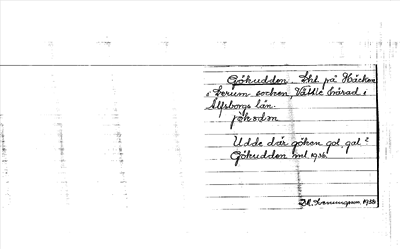 Gökudden. Lht. på Häcken
i Lerum socken, Vättle härad i
Älfsborgs län.
jökodən
Udde där göken gol, gal.
Gökudden ml. 1936.
1936